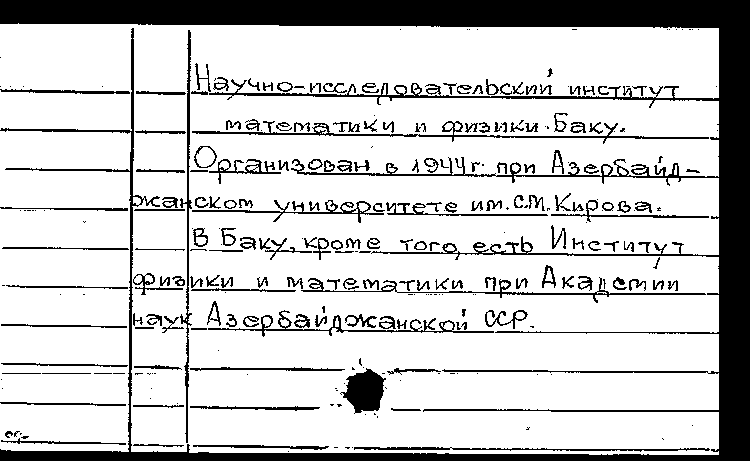 Научно-исследовательский институт
математики и физики. Баку.
Организован в 1944г. при Азербайд-
жанском университете им. С.М. Кирова.
В Баку, кроме того, есть Институт
физики и математики при Академии
наук Азербайджанской ССР.